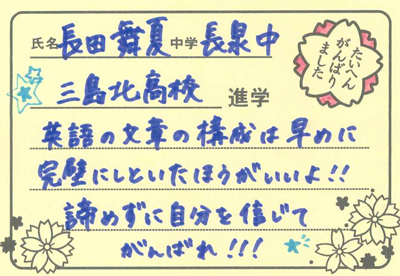 氏名 長田 舞夏 中学 長泉中
たいへん
がんばり
ました
三島北高校 進学
英語の文章の構成は早めに
完璧にしといたほうがいいよ!!
諦めずに自分を信じて
がんばれ!!!